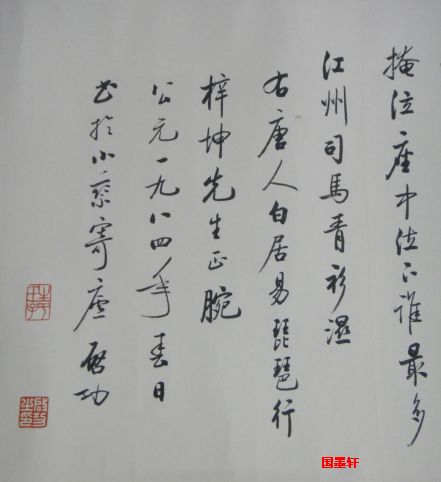 掩泣座中泣下誰最多
江州司馬青衫濕
右唐人白居易琵琶行
梓坤先生正腕
公元一九八四年春日
書於小乘寄廬 啓功
国墨轩